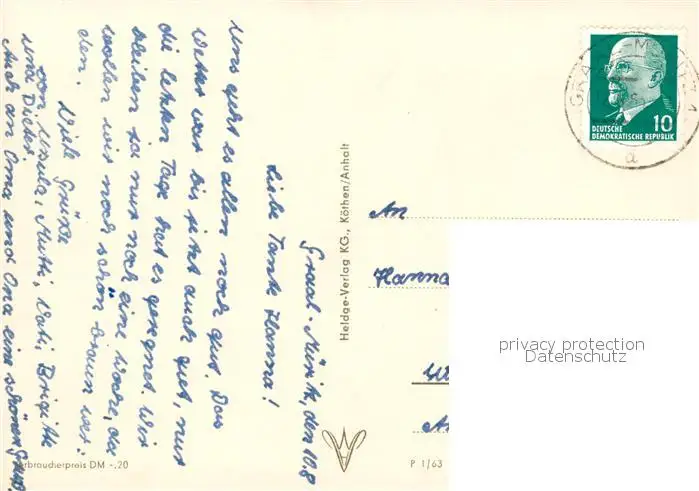 Graal-Müritz, den 10.8
Liebe Tante Hanna!
Uns geht es allen noch gut. Das
Wetter war bis jetzt auch gut, nur
die letzten Tage hat es geregnet. Wir
bleiben ja nur noch eine Woche, da
wollen wir noch schön braun wer-
den.
Viele Grüße
von Ursula, Mutti, Vati, Brigitte
und Dieter.
Auch an Oma und Opa eine schönen Gruß.
Verbraucherpreis DM -,20
Heldge-Verlag KG., Köthen/Anhalt
P 1/63
GRAAL-MÜRITZ 1
a
10
DEUTSCHE
DEMOKRATISCHE REPUBLIK
An
Hanna
privacy protection
Datenschutz